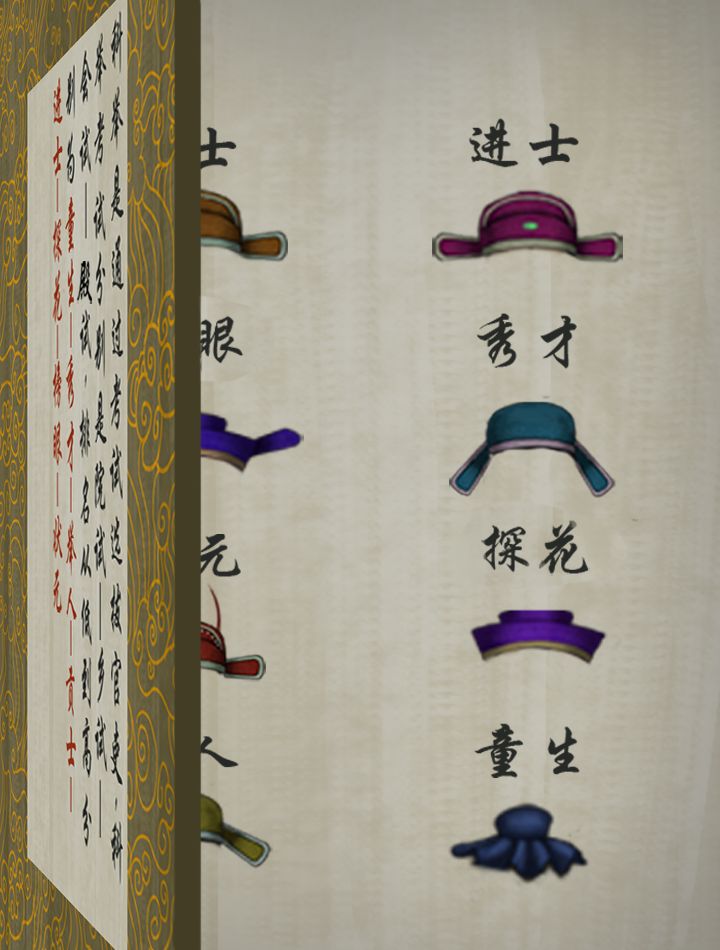 科举是通过考试选拔官吏.科
举考试分别是院试—乡试—
会试—殿试.排名从低到高分
别为童生—秀才—举人—贡士—
进士—探花—榜眼—状元
士
进士
眼
秀才
元
探花
人
童生